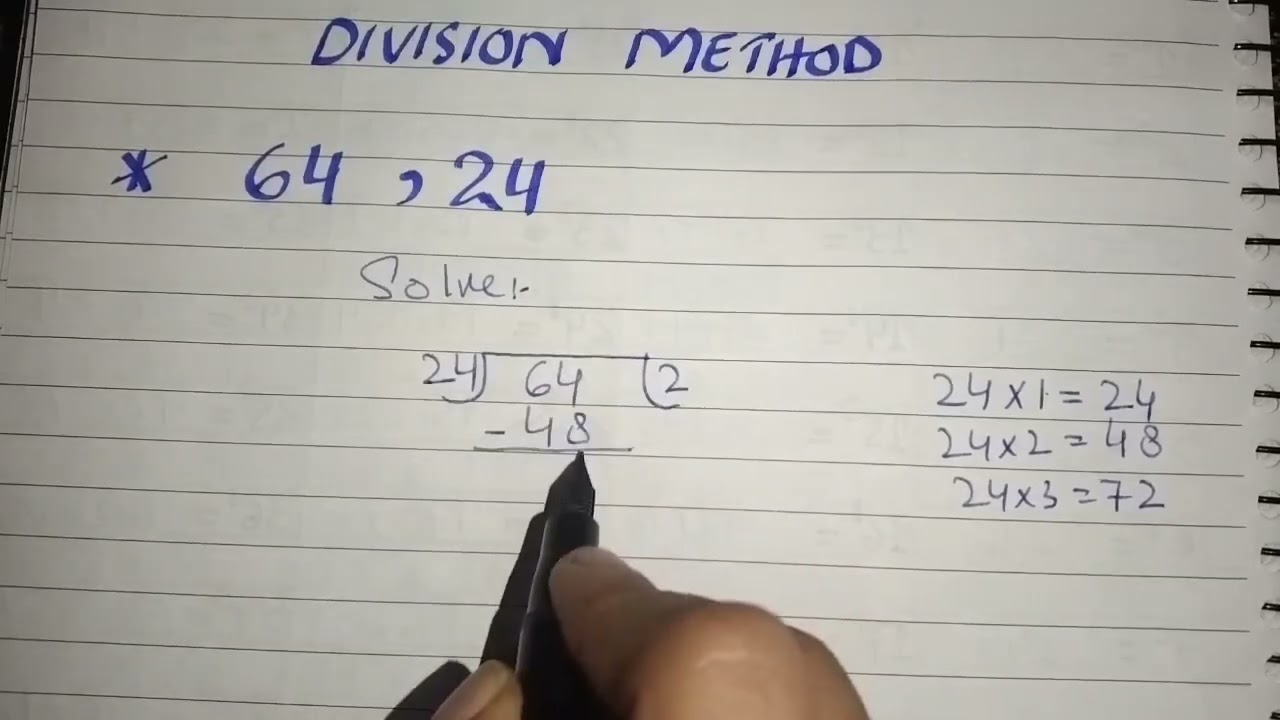 DIVISION METHOD
* 64 , 24
Solve:-
24) 64 (2
- 48
24 x 1 = 24
24 x 2 = 48
24 x 3 = 72